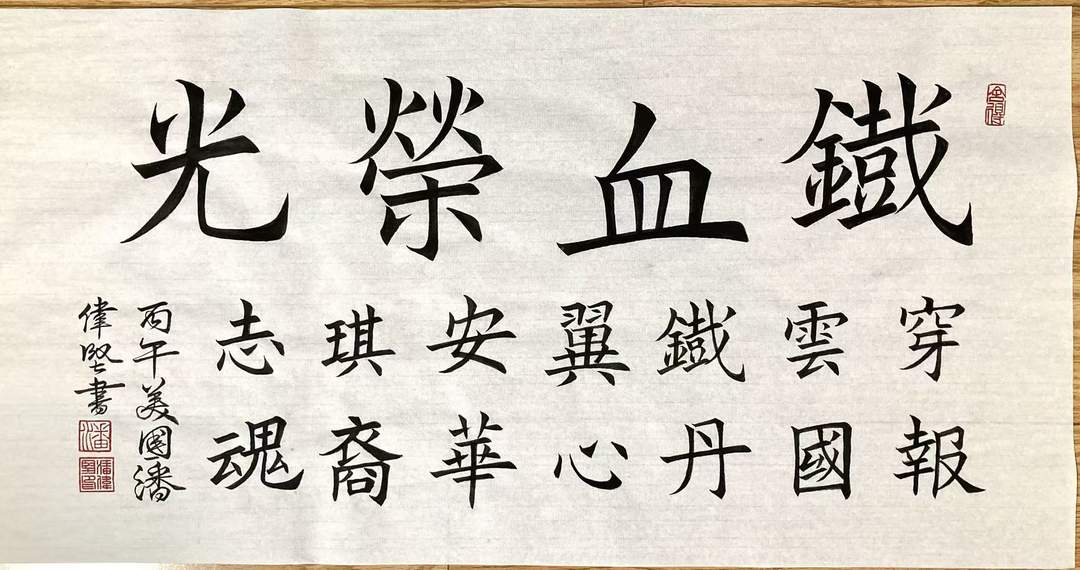 鐵血榮光
穿雲鐵翼安琪志
報國丹心華裔魂
丙午美國潘
偉堅書
潘